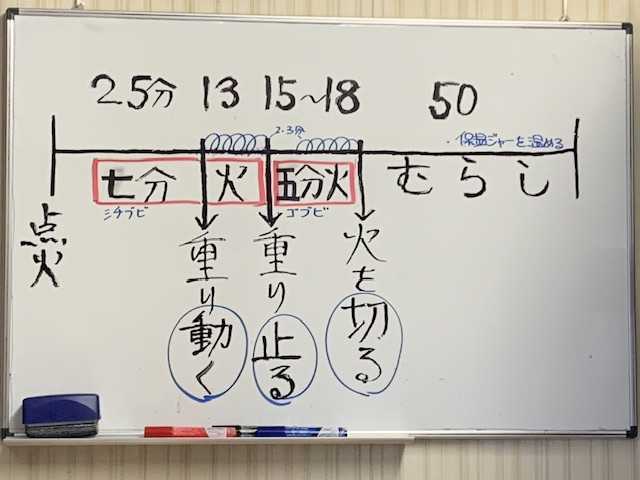 25分 13 15〜18 50
2.3分
・保温ジャーを温める
七分火 五分火 むらし
シチブビ ゴブビ
点火
重り動く
重り止る
火を切る